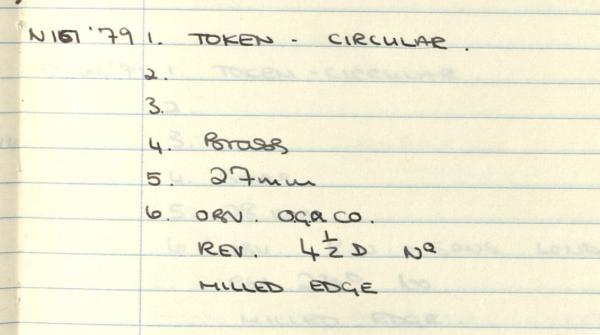 N161 '79 1. TOKEN - CIRCULAR.
2.
3.
4. Brass
5. 27mm
6. OBV. O.G.&CO.
REV. 4½D Nº
MILLED EDGE